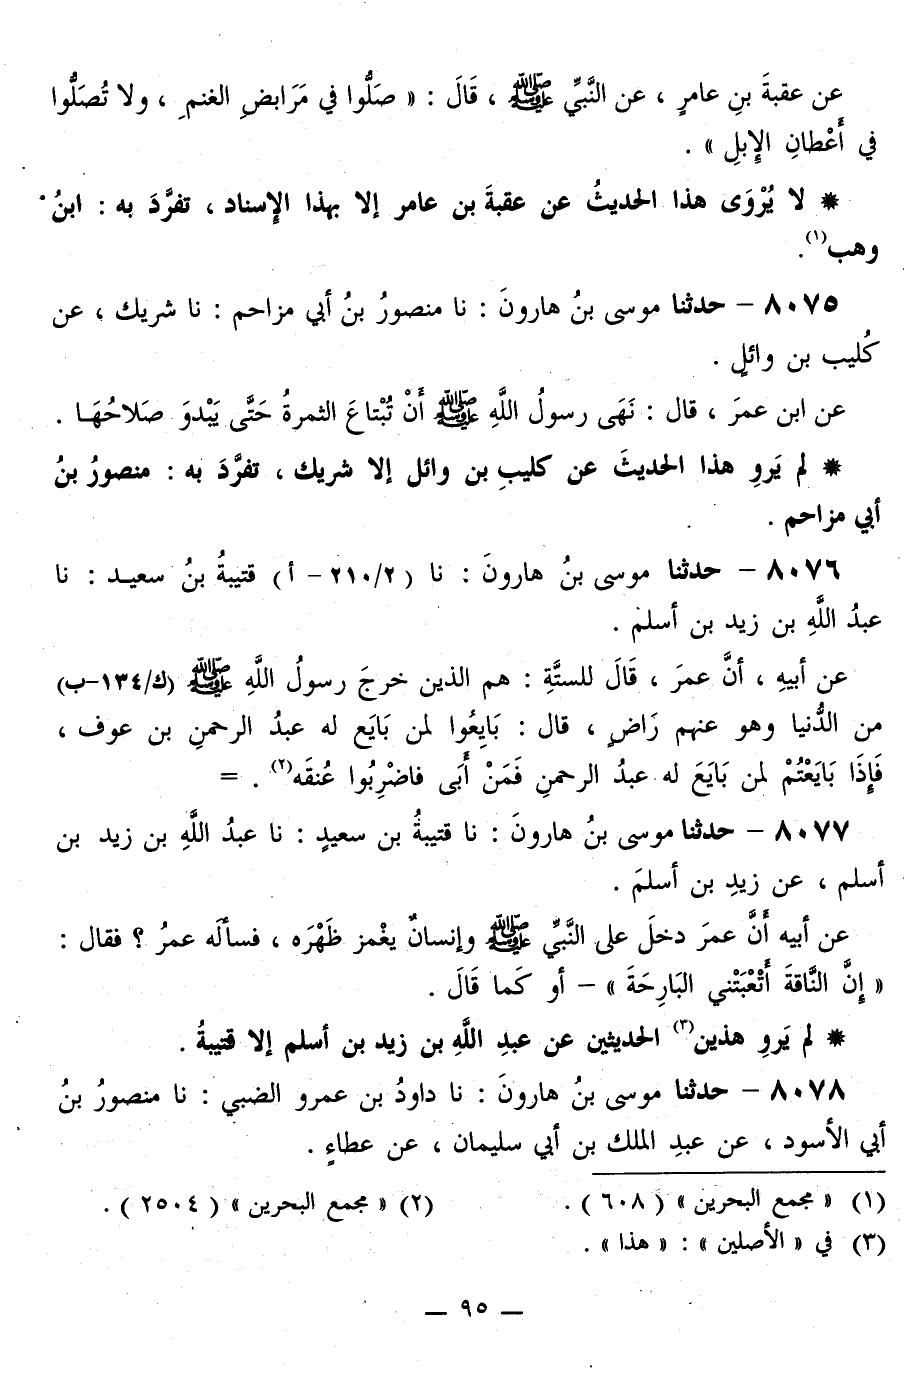 عن عقبةَ بنِ عامرٍ ، عن النَّبيِّ ﷺ ، قَالَ : « صَلُّوا في مَرَابضِ الغنمِ ، ولا تُصَلُّوا
في أَعْطانِ الإِبلِ » .
* لا يُرْوَى هذا الحديثُ عن عقبةَ بن عامر إلا بهذا الإِسناد ، تفرَّدَ به : ابنُ
وهب(١).
٨٠٧٥ – حدثنا موسى بنُ هارونَ : نا منصورُ بنُ أبي مزاحم : نا شريك ، عن
كُليب بن وائلٍ .
عن ابن عمرَ ، قال : نَهَى رسولُ اللَّهِ ﷺ أَنْ تُبْتاعَ الثمرةُ حَتَّى يَبْدوَ صَلاحُهَا .
* لم يَروِ هذا الحديثَ عن كليبِ بن وائل إلا شريك ، تفرَّدَ به : منصورُ بنُ
أبي مزاحم .
٨٠٧٦ – حدثنا موسى بنُ هارونَ : نا ( ٢١٠/٢ – أ ) قتيبةُ بنُ سعيد : نا
عبدُ اللَّهِ بن زيد بن أسلم .
عن أبيهِ ، أنَّ عمرَ ، قَالَ للستَّةِ : هم الذين خرجَ رسولُ اللَّهِ ﷺ (ك/١٣٤-ب)
من الدُّنيا وهو عنهم رَاضٍ ، قال : بَايِعُوا لمن بَايَع له عبدُ الرحمنِ بن عوف ،
فَإِذَا بَايَعْتُمْ لمن بَايَعَ له عبدُ الرحمنِ فَمَنْ أَبَى فاضْرِبُوا عُنقَه(٢) . =
٨٠٧٧ – حدثنا موسى بنُ هارونَ : نا قتيبةُ بن سعيدٍ : نا عبدُ اللَّهِ بن زيد بن
أسلم ، عن زيدِ بن أسلمَ .
عن أبيه أَنَّ عمرَ دخلَ على النَّبيِّ ﷺ وإنسانٌ يغْمز ظَهْرَه ، فسألَه عمرُ ؟ فقال :
« إِنَّ النَّاقةَ أَتْعَبَتْني البَارِحَةَ » – أو كَما قَالَ .
* لم يَروِ هذين(٣) الحديثين عن عبدِ اللَّهِ بن زيد بن أسلم إلا قتيبةُ .
٨٠٧٨ – حدثنا موسى بنُ هارونَ : نا داودُ بن عمرو الضبي : نا منصورُ بنُ
أبي الأسود ، عن عبدِ الملك بن أبي سليمان ، عن عطاءٍ .
(١) « مجمع البحرين » ( ٦٠٨ ) . (٢) « مجمع البحرين » ( ٢٥٠٤ ) .
(٣) في « الأصلين » : « هذا » .
— ٩٥ —